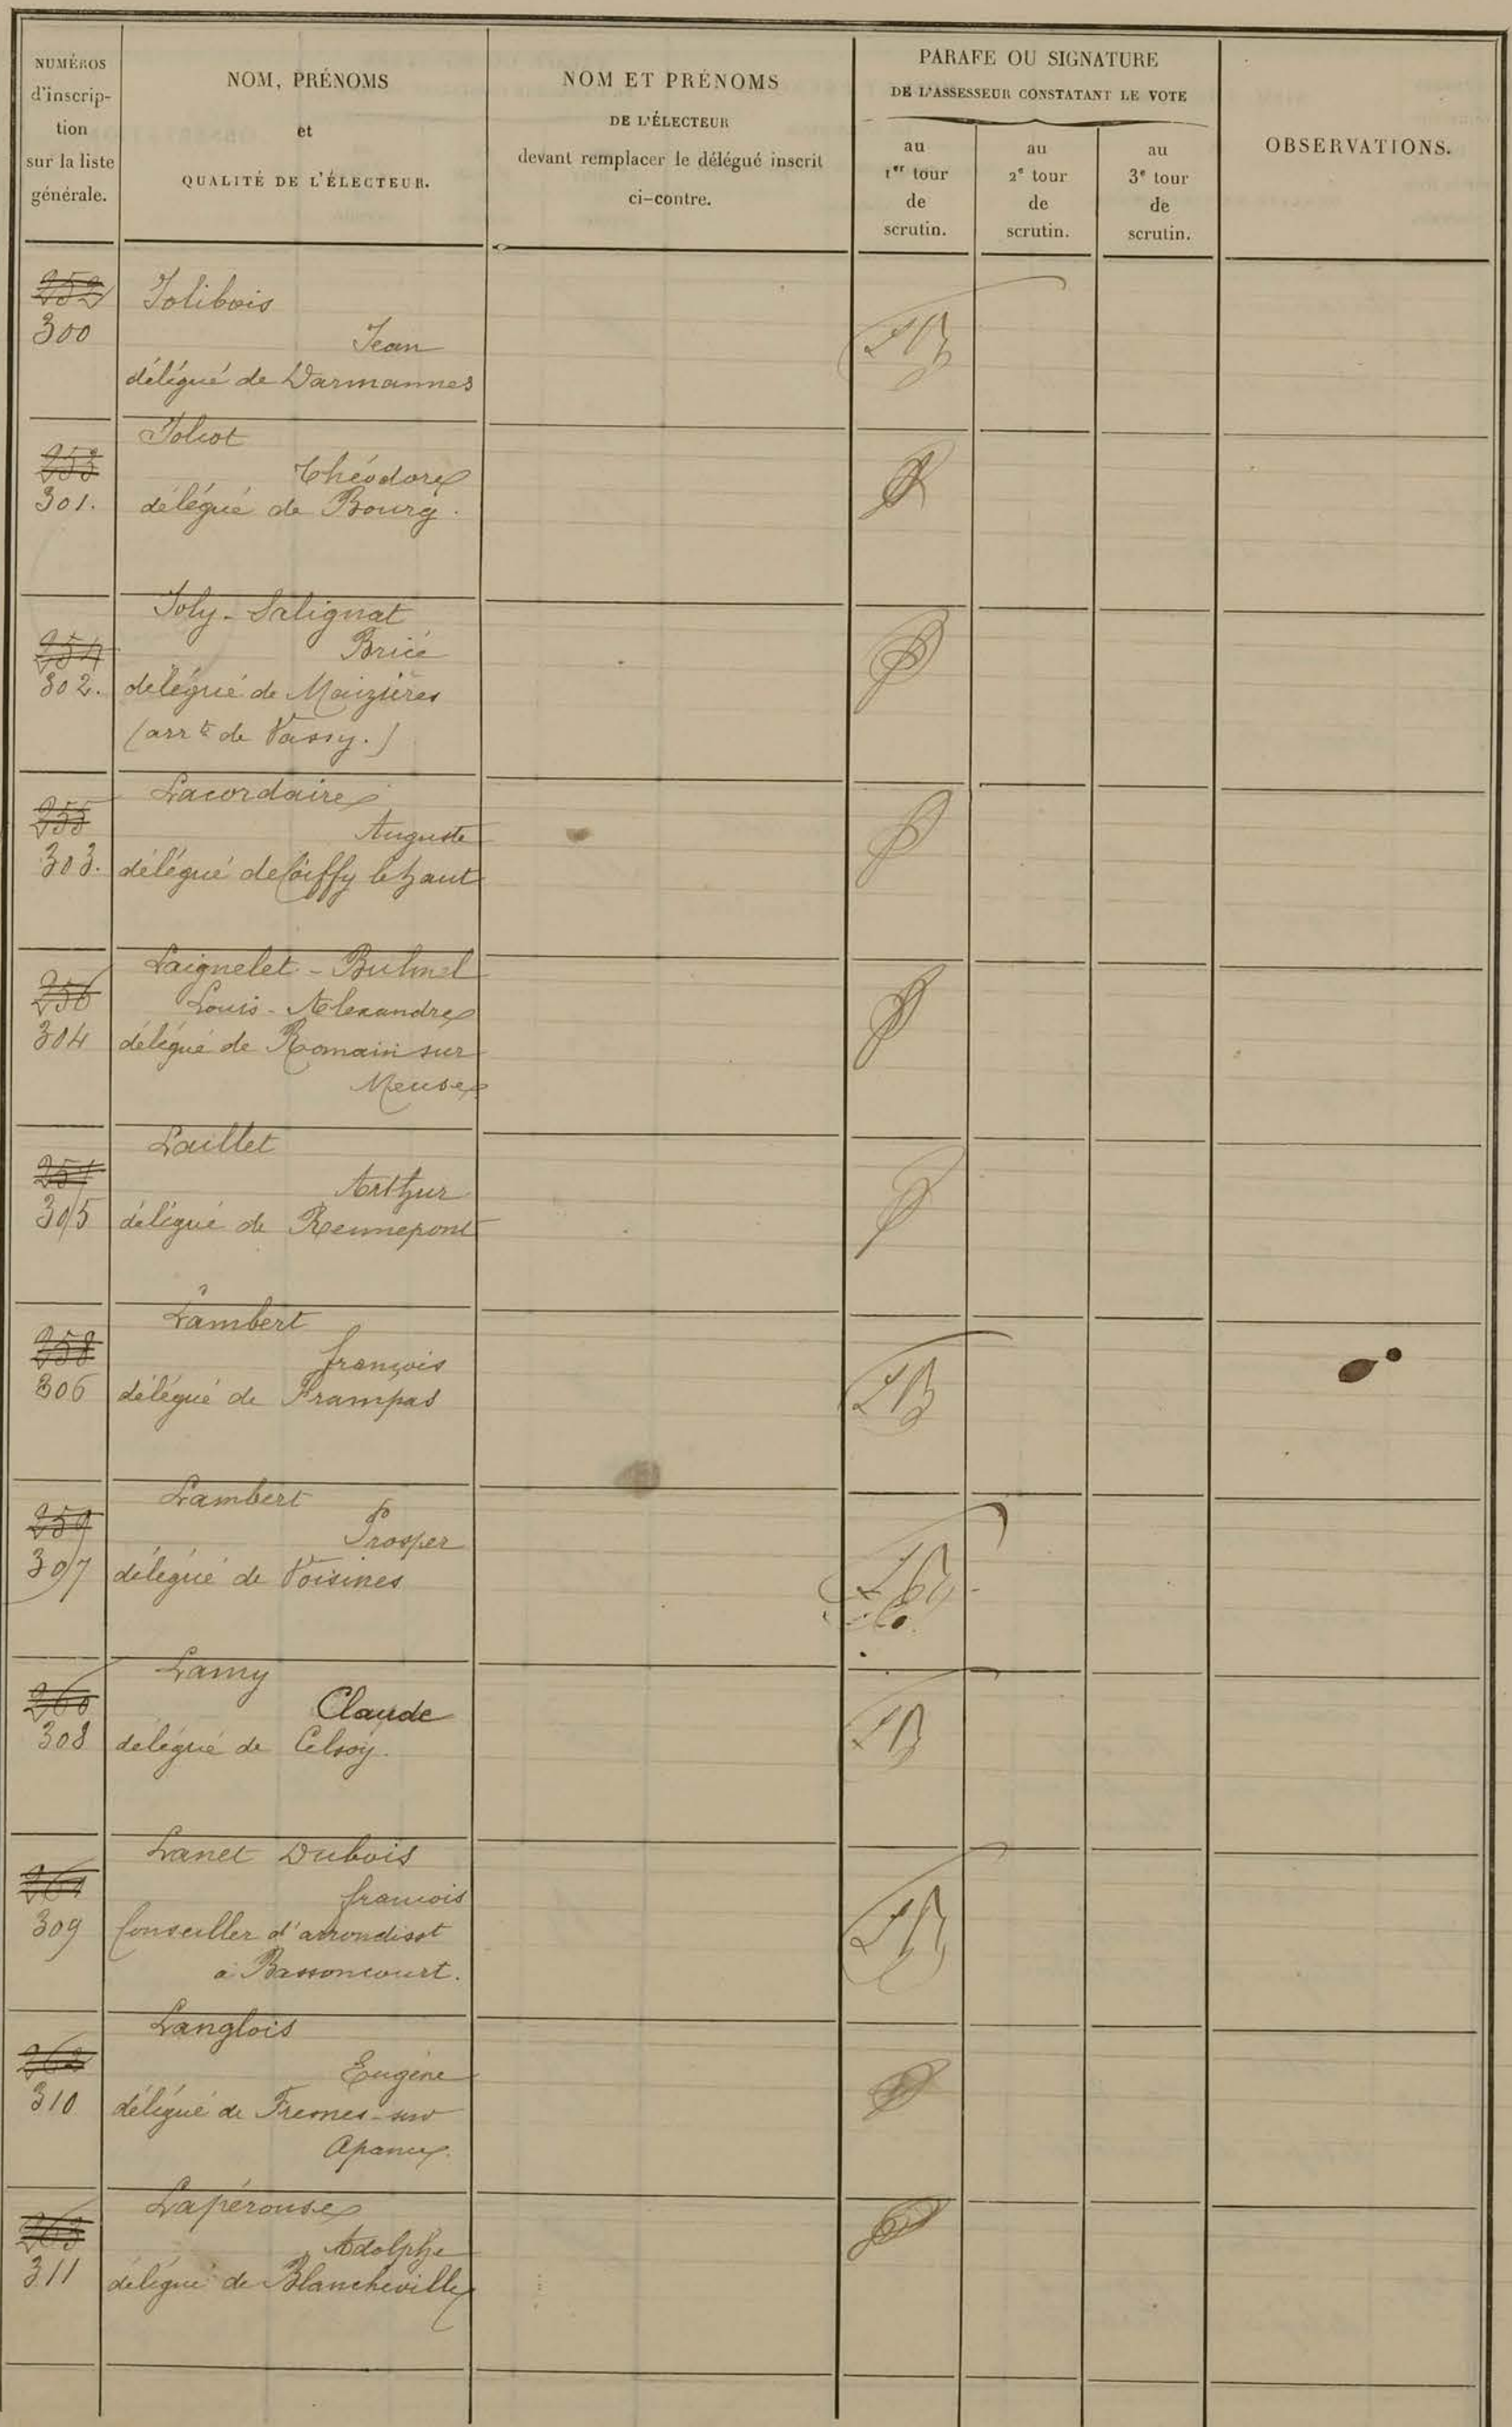 NUMÉROS
d'inscrip-
tion
sur la liste
générale.
NOM, PRÉNOMS
et
QUALITÉ DE L'ÉLECTEUR.
NOM ET PRÉNOMS
DE L'ÉLECTEUR
devant remplacer le délégué inscrit
ci-contre.
PARAFE OU SIGNATURE
DE L'ASSESSEUR CONSTATANT LE VOTE
au
1er tour
de
scrutin.
au
2e tour
de
scrutin.
au
3e tour
de
scrutin.
OBSERVATIONS.
252
300
Jolibois
Jean
délégué de Darmannes
253
301.
Joliot
Théodore
délégué de Bourg.
254
302.
Joly-Salignat
Brice
délégué de Maizières
(arrt de Vassy.)
255
303.
Lacordaire
Auguste
délégué de Coiffy le haut
256
304
Laignelet-
Louis-Alexandre
délégué de Romain sur
Meuse
257
305
Laillet
Arthur
délégué de Rennepont
258
306
Lambert
françois
délégué de Frampas
259
307
Lambert
Prosper
délégué de Voisines
260
308
Lamy
Claude
délégué de Celsoy.
261
309
Lanet Dubois
francois
Conseiller d'arrondisst
à Bassoncourt.
262
310
Langlois
Eugène
délégué de Fresnes-sur
Apance.
263
311
Lapérouse
Adolphe
délégué de Blancheville